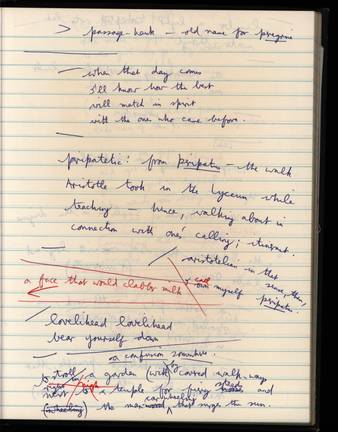 > passage-hawk – old name for peregrine
when that day comes
I'll know how the best
will match in spirit
with the one who came before.
peripatetic: from peripatos – the walk
Aristotle took in the Lyceum while
teaching – hence, walking about in
connection with one's calling; itinerant.
aristotelian in that sense, then,
I call myself peripatos.
a face that would clabber milk
lovelihead lovelihead
bear yourself down
a confusion somewhere.
to stroll in a garden (with) by covered walk-ways
next to a temple for fiery steeds and
the man cartwheeling that surges the sun.